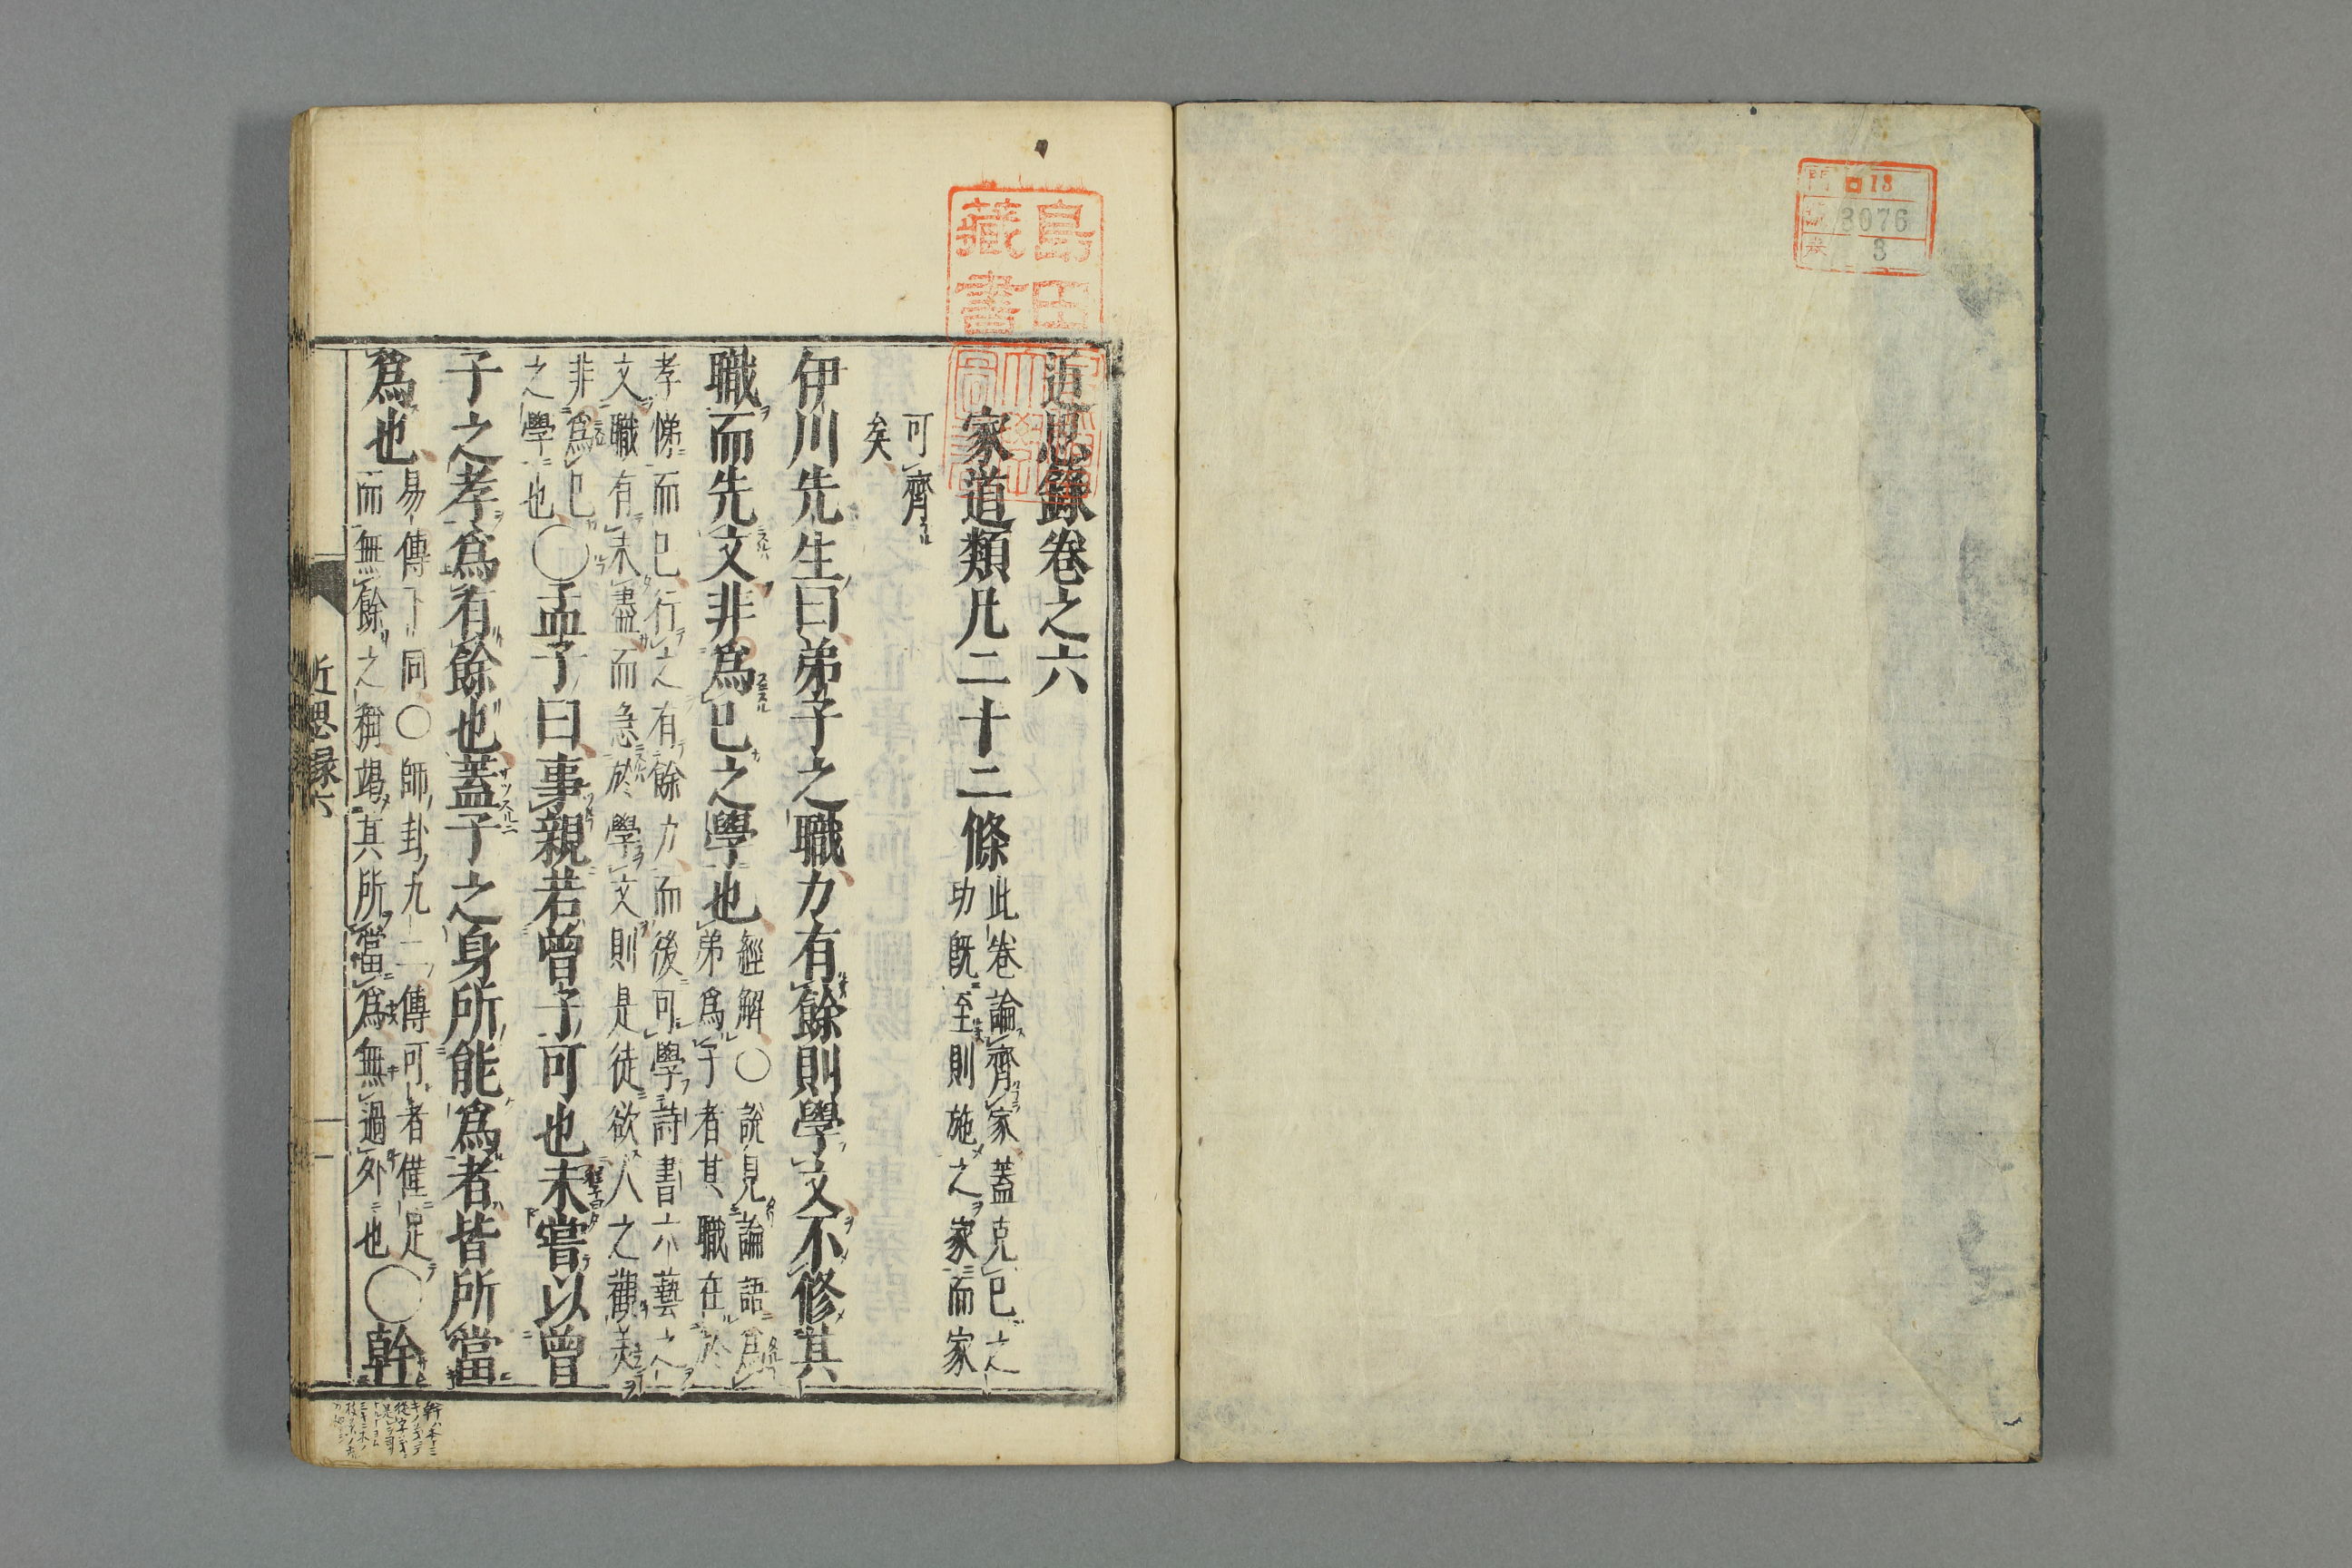 門 ロ13
號 3076
卷 3
島田
藏書
近思錄卷之六
家道類凡二十二條
此卷論齊家蓋克已之
功既至則施之家而家
可齊
矣
伊川先生曰弟子之職力有餘則學文不修其
職而先文非爲已之學也
經解○說見論語爲
弟爲子者其職在於
孝悌而已行之有餘力而後可學詩書六藝之
文職有未盡而急於學文則是徒欲人之觀美
非爲已
之學也
○孟子曰事親若曾子可也未嘗以曾
子之孝爲有餘也蓋子之身所能爲者皆所當
爲也
易傳下同○師卦九二傳可者僅足
而無餘之稱竭其所當爲無過外也
○幹
近思録六
一